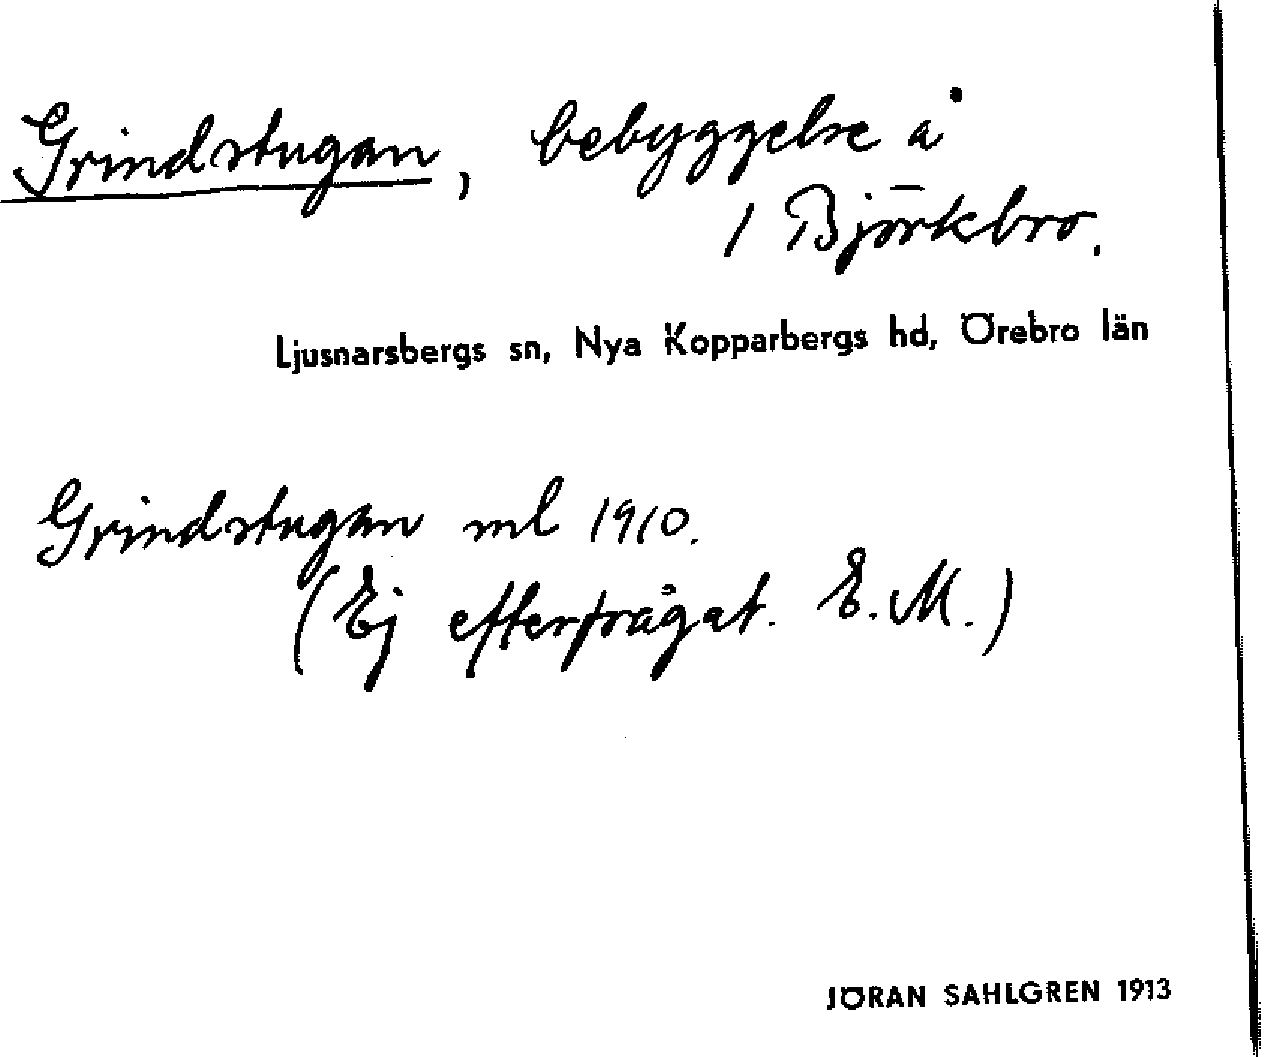 Grindstugan, bebyggelse å
1 Björkbro.
Ljusnarsbergs sn, Nya Kopparbergs hd, Örebro län
Grindstugan ml 1910.
(Ej efterfrågat. E. M.)
JÖRAN SAHLGREN 1913